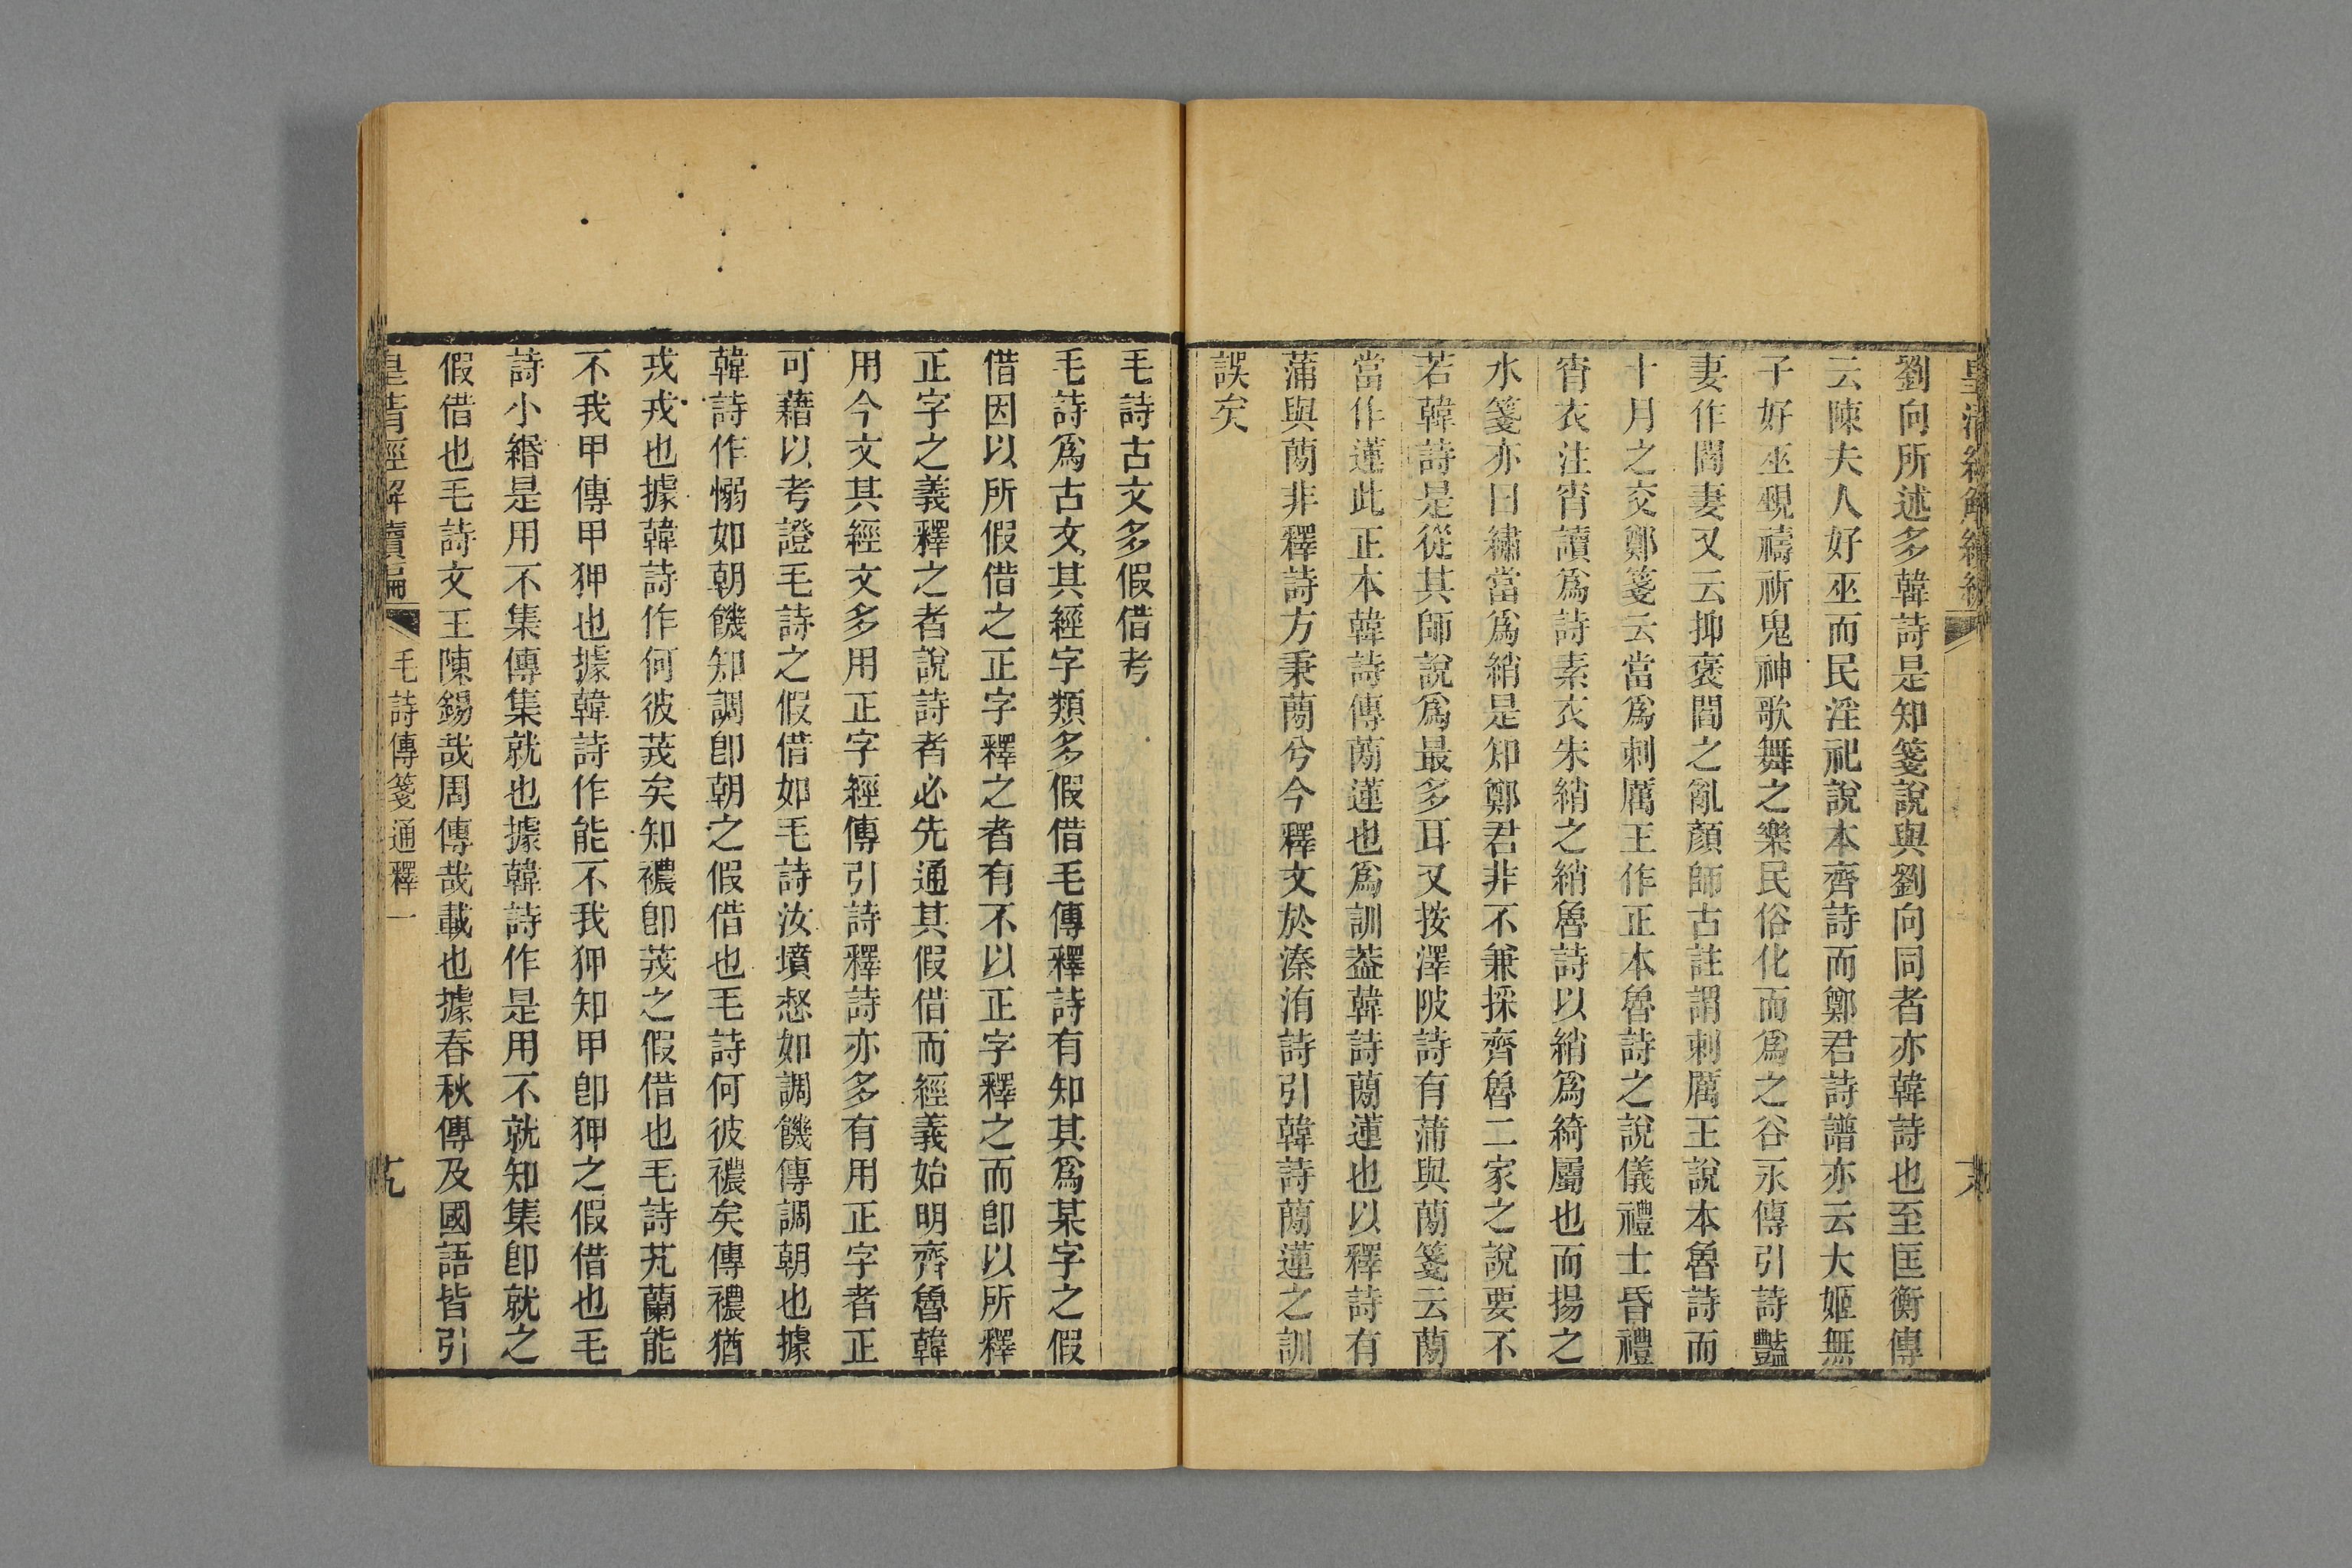 皇清經解續編
劉向所述多韓詩是知箋說與劉向同者亦韓詩也至匡衡傳
云陳夫人好巫而民淫祀說本齊詩而鄭君詩譜亦云大姬無
子好巫覡禱祈鬼神歌舞之樂民俗化而爲之谷永傳引詩豔
妻作閻妻又云抑褒閻之亂顏師古註謂刺厲王說本魯詩而
十月之交鄭箋云當爲刺厲王作正本魯詩之說儀禮士昏禮
宵衣注宵讀爲詩素衣朱綃之綃魯詩以綃爲綺屬也而揚之
水箋亦曰繡當爲綃是知鄭君非不兼採齊魯二家之說要不
若韓詩是從其師說爲最多耳又按澤陂詩有蒲與蕑箋云蕑
當作蓮此正本韓詩傳蕑蓮也爲訓葢韓詩蕑蓮也以釋詩有
蒲與蕑非釋詩方秉蕑兮今釋文於溱洧詩引韓詩蕑蓮之訓
誤矣
毛詩古文多假借考
毛詩爲古文其經字類多假借毛傳釋詩有知其爲某字之假
借因以所假借之正字釋之者有不以正字釋之而卽以所釋
正字之義釋之者說詩者必先通其假借而經義始明齊魯韓
用今文其經文多用正字經傳引詩釋詩亦多有用正字者正
可藉以考證毛詩之假借如毛詩汝墳惄如調饑傳調朝也據
韓詩作愵如朝饑知調卽朝之假借也毛詩何彼襛矣傳襛猶
戎戎也據韓詩作何彼茙矣知襛卽茙之假借也毛詩芄蘭能
不我甲傳甲狎也據韓詩作能不我狎知甲卽狎之假借也毛
詩小緡是用不集傳集就也據韓詩作是用不就知集卽就之
假借也毛詩文王陳錫哉周傳哉載也據春秋傳及國語皆引
皇清經解續編
毛詩傳箋通釋一